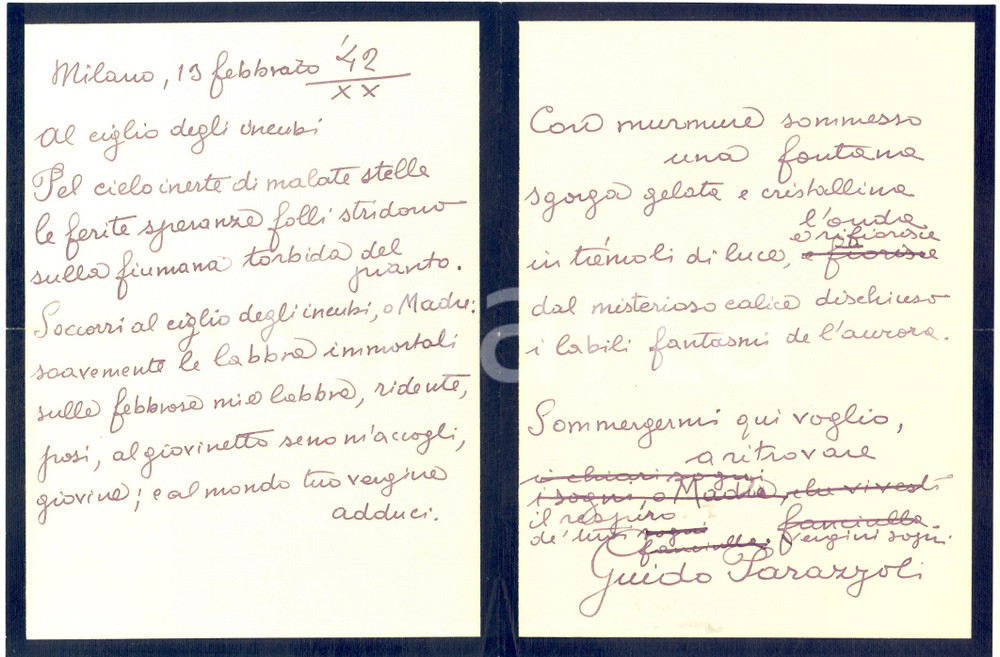 Milano, 13 febbraio '42
XX
Al ciglio degli incubi
Pel cielo inerte di malate stelle
le ferite speranze folli stridono
sulla fiumana torbida del
pianto.
Soccorri al ciglio degli incubi, o Madre:
soavemente le labbra immortali
sulle febbrose mie labbra, ridente,
posi, al giovinetto seno m'accogli,
giovine; e al mondo tuo vergine
adduci.
Così murmure sommesso
una fontana
sgorga gelata e cristallina
l'onda
in trémoli di luce, e fiorisce
e rifiorisce
dal misterioso calice dischiuso
i labili fantasmi de l'aurora.
Sommergermi qui voglio,
a ritrovare
i chiari sogni
i sogni, o Madre, che vivesti
il respiro fanciulla
de' tuoi sogni vergini sogni.
fanciulla.
Guido Parazzoli